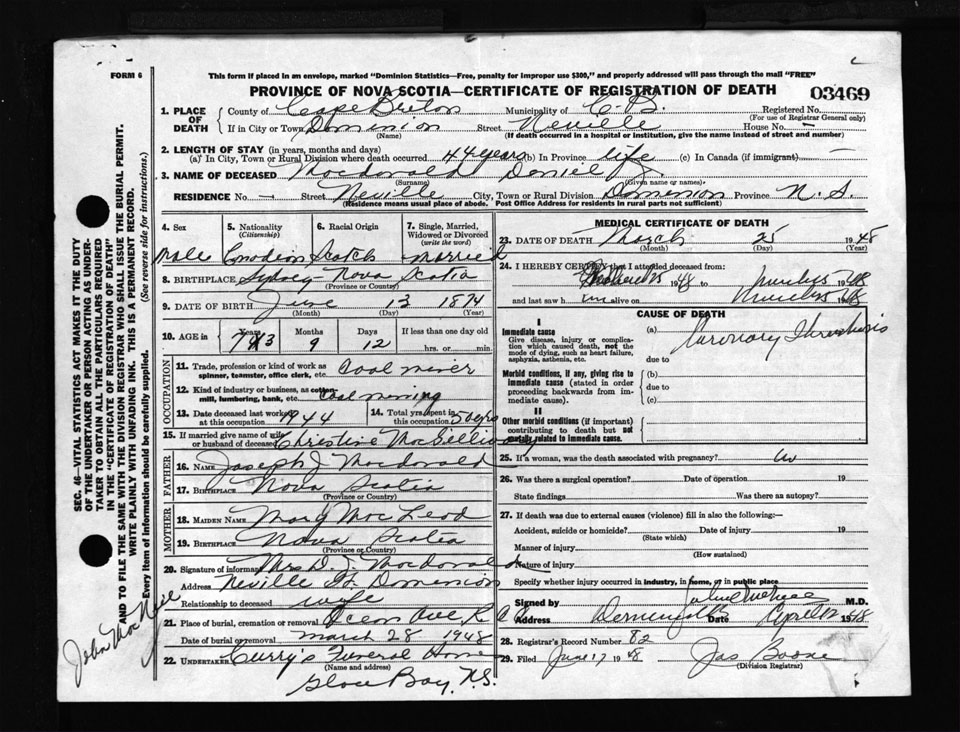 FORM 6
This form if placed in an envelope, marked "Dominion Statistics—Free, penalty for improper use $300," and properly addressed will pass through the mail "FREE"
PROVINCE OF NOVA SCOTIA—CERTIFICATE OF REGISTRATION OF DEATH
03469
1. PLACE OF DEATH
County of Cape Breton Municipality of C. B. Registered No.
(For use of Registrar General only)
If in City or Town Dominion Street Neville House No. —
(Name) (If death occurred in a hospital or institution, give the name instead of street and number)
2. LENGTH OF STAY (in years, months and days)
(a) In City, Town or Rural Division where death occurred 44 years (b) In Province life (c) In Canada (if immigrant) —
3. NAME OF DECEASED Macdonald Daniel J.
(Surname) (Given name or names)
RESIDENCE No. — Street Neville City, Town or Rural Division Dominion Province N. S.
(Residence means usual place of abode. Post Office Address for residents in rural parts not sufficient)
4. Sex 5. Nationality (Citizenship) 6. Racial Origin 7. Single, Married, Widowed or Divorced (write the word)
Male Canadian Scotch Married
8. BIRTHPLACE Sydney Nova Scotia
(Province or Country)
9. DATE OF BIRTH June 13 1874
(Month) (Day) (Year)
10. AGE in Years Months Days If less than one day old
73 9 12 hrs. or min.
OCCUPATION
11. Trade, profession or kind of work as spinner, teamster, office clerk, etc. Coal miner
12. Kind of industry or business, as cotton-mill, lumbering, bank, etc. Coal mining
13. Date deceased last worked at this occupation 1944 14. Total yrs. spent in this occupation 50 yrs
15. If married give name of wife or husband of deceased Christine MacGillivary
FATHER
16. NAME Joseph J Macdonald
17. BIRTHPLACE Nova Scotia
(Province or Country)
MOTHER
18. MAIDEN NAME Mary MacLeod
19. BIRTHPLACE Nova Scotia
(Province or Country)
20. Signature of informant Mrs D. J. Macdonald
Address Neville St. Dominion
Relationship to deceased wife
21. Place of burial, cremation or removal Ocean Ave
Date of burial or removal march 28 1948
22. UNDERTAKER Curry's Funeral Home
(Name and address)
Glace Bay, N.S.
MEDICAL CERTIFICATE OF DEATH
23. DATE OF DEATH March 25 1948
(Month) (Day) (Year)
24. I HEREBY CERTIFY that I attended deceased from:
March 25 1948 to 1948
and last saw h im alive on 1948
CAUSE OF DEATH
I
Immediate cause
Give disease, injury or complication which caused death, not the mode of dying, such as heart failure, asphyxia, asthenia, etc.
(a) Coronary Thrombosis
due to
Morbid conditions, if any, giving rise to immediate cause (stated in order proceeding backwards from immediate cause)
(b)
due to
(c)
II
Other morbid conditions (if important) contributing to death but not causally related to immediate cause.
25. If a woman, was the death associated with pregnancy?
26. Was there a surgical operation? Date of operation 19
State findings Was there an autopsy?
27. If death was due to external causes (violence) fill in also the following:—
Accident, suicide or homicide? Date of injury 19
(State which)
Manner of injury
(How sustained)
Nature of injury
Specify whether injury occurred in industry, in home, or in public place
Signed by M.D.
Address Date April 12 1948
28. Registrar's Record Number 82
29. Filed June 17 1948 Jas Boone
(Division Registrar)
SEC. 46—VITAL STATISTICS ACT MAKES IT THE DUTY
OF THE UNDERTAKER OR PERSON ACTING AS UNDERTAKER TO OBTAIN ALL THE PARTICULARS REQUIRED
IN THE "CERTIFICATE OF REGISTRATION OF DEATH"
AND TO FILE THE SAME WITH THE DIVISION REGISTRAR WHO SHALL ISSUE THE BURIAL PERMIT.
WRITE PLAINLY WITH UNFADING INK. THIS IS A PERMANENT RECORD.
Every item of information should be carefully supplied. (See reverse side for instructions.)
John MacNeil